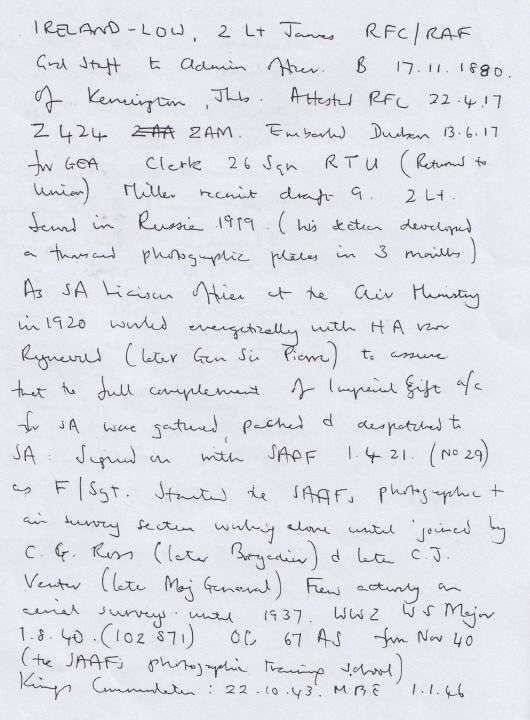 IRELAND-LOW, 2 Lt James RFC/RAF
Grd Staff to Admin Officer. B 17.11.1880.
of Kensington, Jhb. Attested RFC 22.4.17
2424 2AA 2AM. Embarked Durban 13.6.17
for GEA Clerk 26 Sqn RTU (Returned to
Union) Miller recruit draft 9. 2 Lt.
Served in Russia 1919. (his section developed
a thousand photographic plates in 3 months)
As SA Liaison Officer at the Air Ministry
in 1920 worked energetically with HA van
Ryneveld (later Gen Sir Pierre) to assure
that the full complement of Imperial Gift a/c
for SA were gathered, packed & despatched to
SA. Signed on with SAAF 1.4.21. (No 29)
as F/Sgt. Started the SAAFs photographic +
air survey section working alone until joined by
C. G. Ross (later Brigadier) & later C.J.
Venter (later Maj General) Flew actively on
aerial surveys until 1937. WW2 WS Major
1.8.40. (102871) OC 67 AS from Nov 40
(the SAAFs photographic training school)
Kings Commendation: 22.10.43. MBE 1.1.46